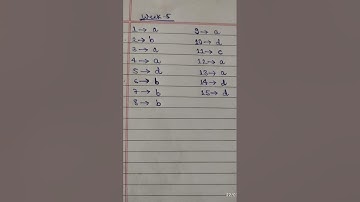 Week-5
1→ a
2→ b
3→ a
4→ a
5→ d
6→ b
7→ b
8→ b
9→ a
10→ d
11→ c
12→ a
13→ a
14→ d
15→ d